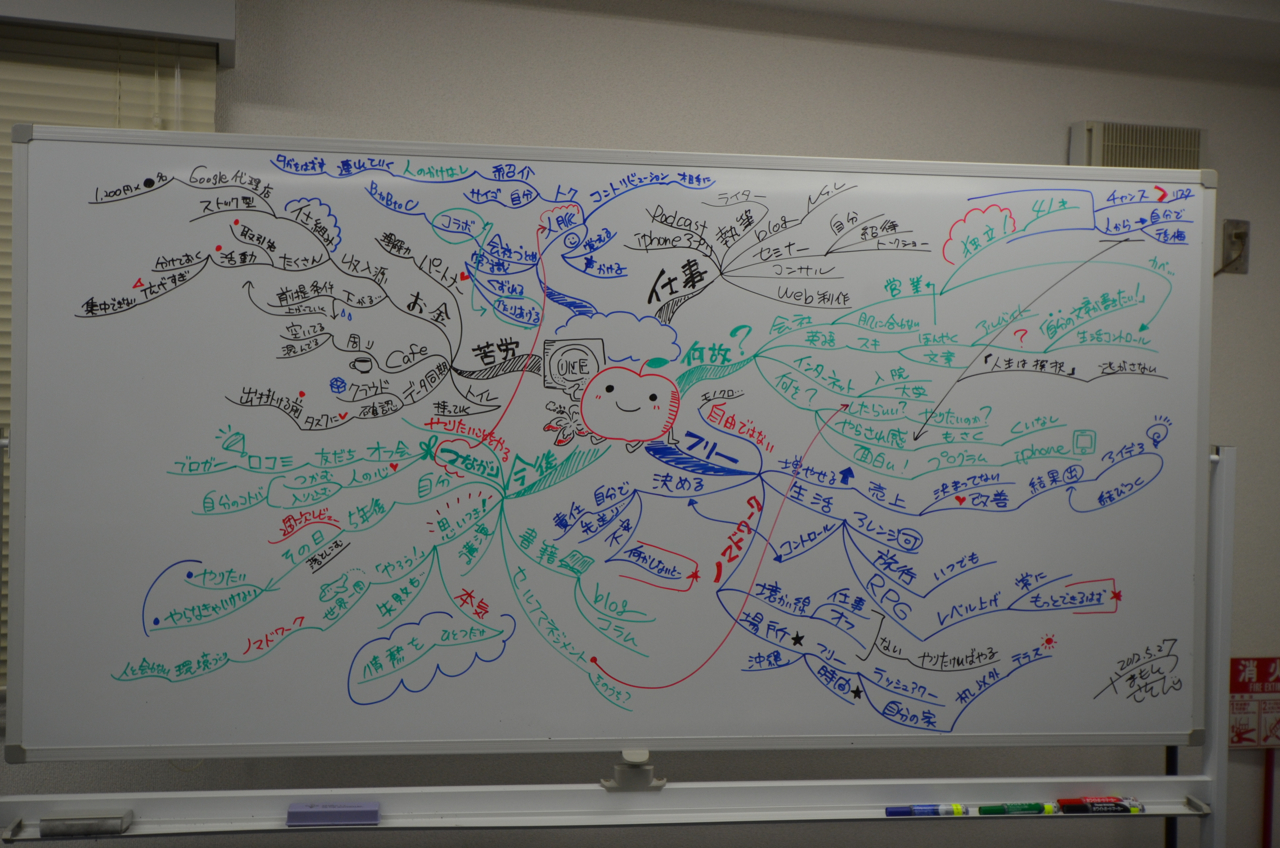 連れていく
人のかけなし
紹介
1,200円×●%
Google代理店
ストック型
仕組み
取引先
活動
たくさん
収入源
分けておく
広げすぎ
集中できない
お金
前提条件
下がる…
上がっていく
空いてる
混んでる
周り
Cafe
クラウド
データ同期
確認
出掛ける前
タスクに
トイレ
持ってく
苦労
パートナー
BtoBtoC
コラボ
サイゴ
自分
トク
コントリビューション
相手に
人脈
ライター
Podcast
iphoneアプリ
執筆
blog
セミナー
自分
招待
トークショー
コンサル
Web制作
仕事
LINE
何故?
会社
営業
肌に合わない
独立!
チャンス
人から→自分で
英語
スキ
ほんやく
文章
?
自分の文章が書きたい!
生活コントロール
カベ…
インターネット
入院
大学
「人生は選択」
逃がさない
何を?
したらいい?
やりたいのか?
やらされ感
もさく
くいなし
面白い!
プログラム
iphone
モノクロ…
自由ではない
フリー
決める
責任
自分で
先送り
不安
何かしないと
増やせる
売上
決まってない
改善
結果出
アイデア
結びつく
生活
コントロール
アレンジ可
旅行
いつでも
RPG
レベル上げ
常に
もっとできるはず
ノマドワーク
境かい線
仕事
オフ
ない
やりたければやる
場所
沖縄
フリー
時間
ラッシュアワー
自分の家
机以外
テラス
今後
やりたいことをやる
つながり
オフ会
友だち
口コミ
ブロガー
人の心
つかむ
入り込む
自分のコトバ
自分
5年後
週次レビュー
その日
落とし込む
やりたい
やらなきゃいけない
思いつき!
「やろう!」
世界一周
失敗も…
ノマドワーク
環境づくり
本気
情熱を
ひとつだけ
書籍
blog
コラム
セルフマネジメント
そのうち?
2012.5.27
やまもと
消火
FIRE EXT